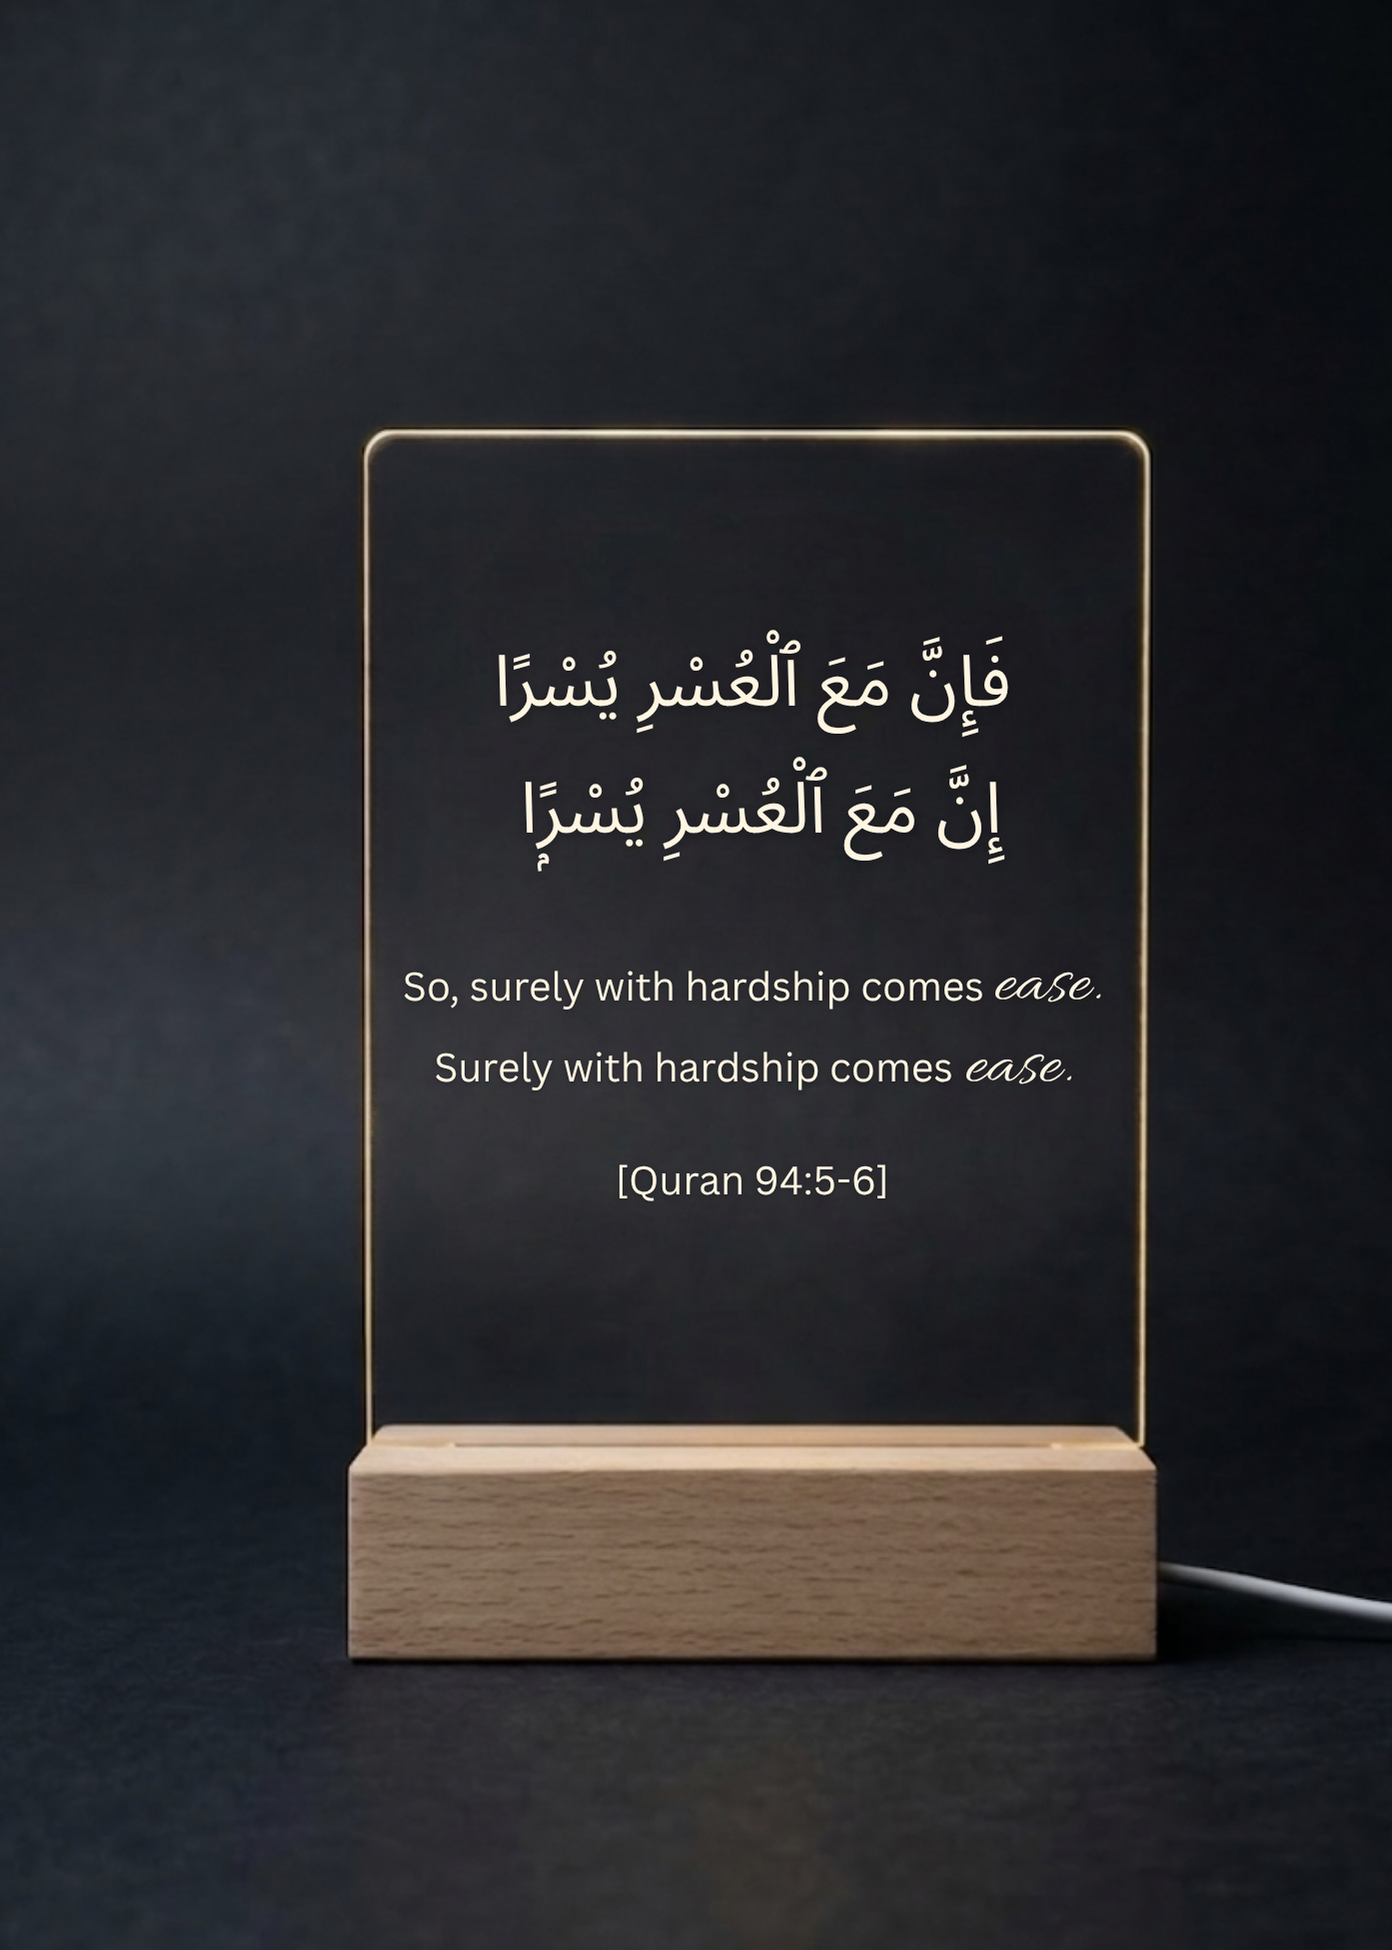 فَإِنَّ مَعَ ٱلْعُسْرِ يُسْرًا
إِنَّ مَعَ ٱلْعُسْرِ يُسْرًۭا
So, surely with hardship comes ease.
Surely with hardship comes ease.
[Quran 94:5-6]